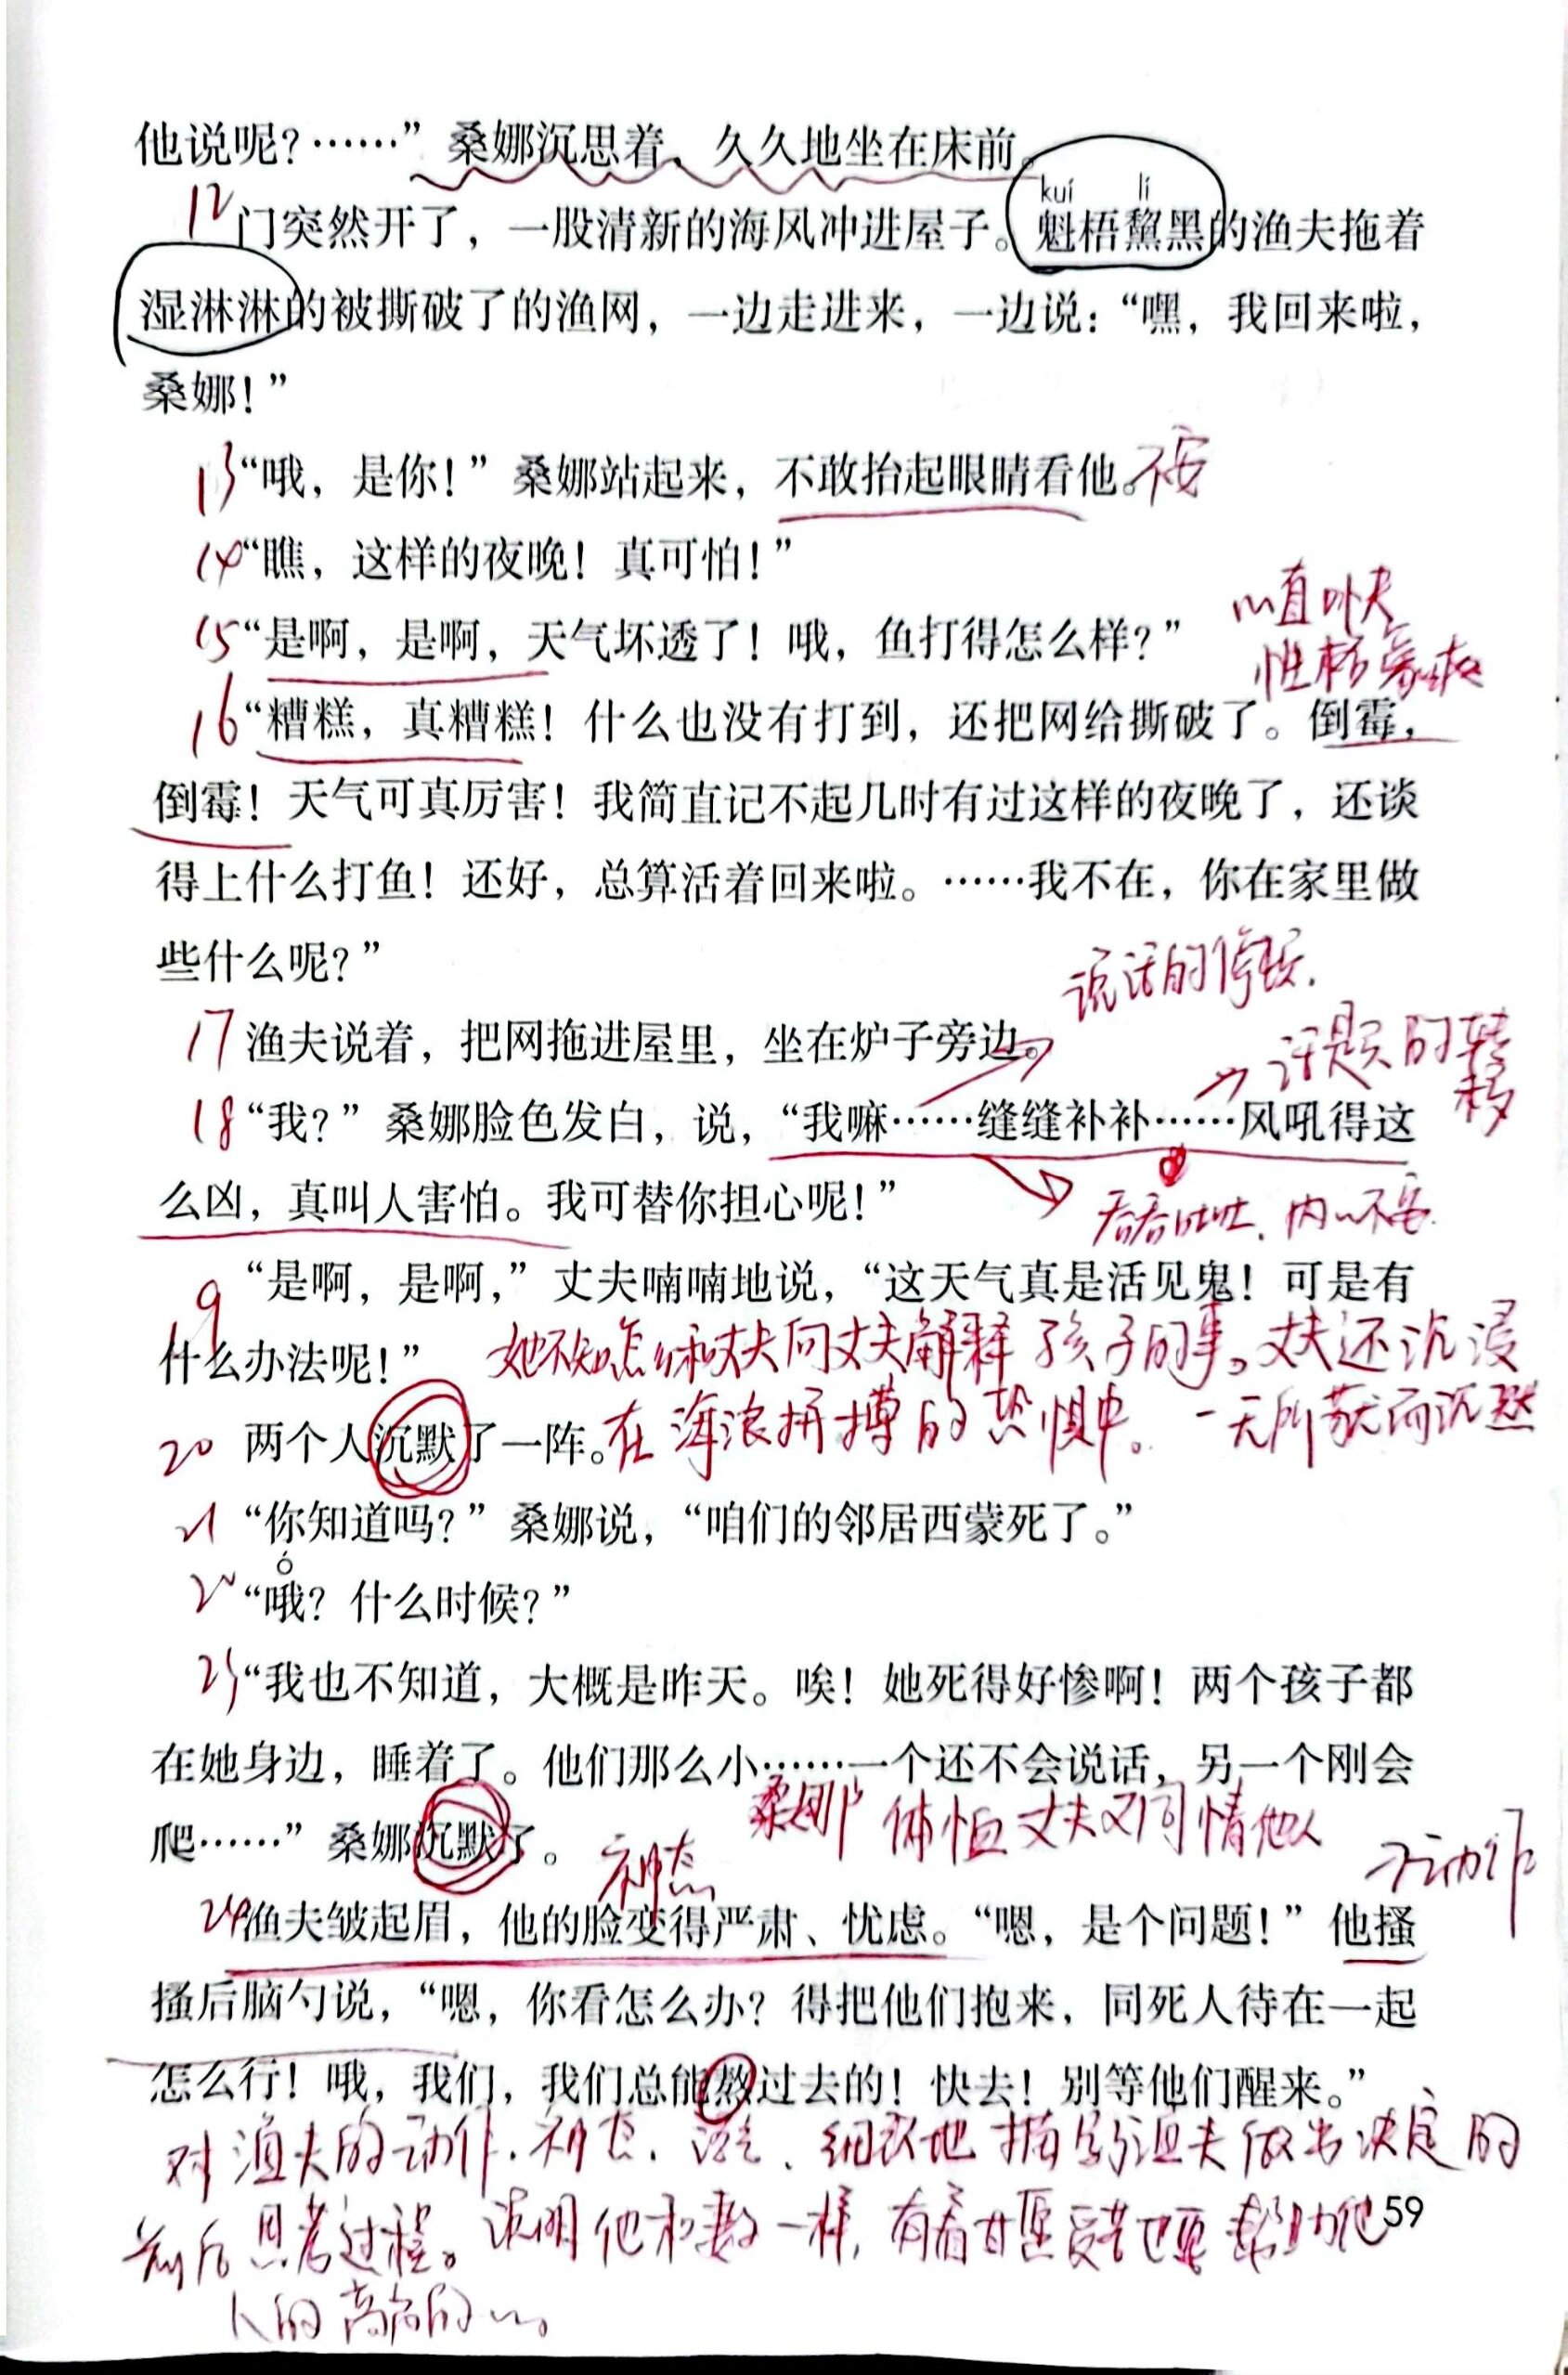 他说呢？……”桑娜沉思着，久久地坐在床前。
kuí lí
12 门突然开了，一股清新的海风冲进屋子。魁梧黧黑的渔夫拖着
湿淋淋的被撕破了的渔网，一边走进来，一边说：“嘿，我回来啦，
桑娜！”
13 “哦，是你！”桑娜站起来，不敢抬起眼睛看他。不安
14 “瞧，这样的夜晚！真可怕！”
心直口快
15 “是啊，是啊，天气坏透了！哦，鱼打得怎么样？”
性格豪爽
16 “糟糕，真糟糕！什么也没有打到，还把网给撕破了。倒霉，
倒霉！天气可真厉害！我简直记不起几时有过这样的夜晚了，还谈
得上什么打鱼！还好，总算活着回来啦。……我不在，你在家里做
些什么呢？”
说话的停顿.
17 渔夫说着，把网拖进屋里，坐在炉子旁边。
话题的转移
18 “我？”桑娜脸色发白，说，“我嘛……缝缝补补……风吼得这
么凶，真叫人害怕。我可替你担心呢！”
吞吞吐吐.内心不安.
19 “是啊，是啊，”丈夫喃喃地说，“这天气真是活见鬼！可是有
什么办法呢！”
她不知怎么和丈夫向丈夫解释孩子的事。丈夫还沉浸
20 两个人沉默了一阵。
在海浪拼搏的恐惧中。一无所获而沉默
21 “你知道吗？”桑娜说，“咱们的邻居西蒙死了。”
ó
22 “哦？什么时候？”
23 “我也不知道，大概是昨天。唉！她死得好惨啊！两个孩子都
在她身边，睡着了。他们那么小……一个还不会说话，另一个刚会
爬……”桑娜沉默了。
桑娜体恤丈夫又同情他人
神态
动作
24 渔夫皱起眉，他的脸变得严肃、忧虑。“嗯，是个问题！”他搔
搔后脑勺说，“嗯，你看怎么办？得把他们抱来，同死人待在一起
怎么行！哦，我们，我们总能熬过去的！快去！别等他们醒来。”
对渔夫的动作.神态.语言、细致地描写渔夫做出决定的
前后思考过程。说明他和妻子一样,有着甘愿受苦也要帮助他
人的高尚的心。
59